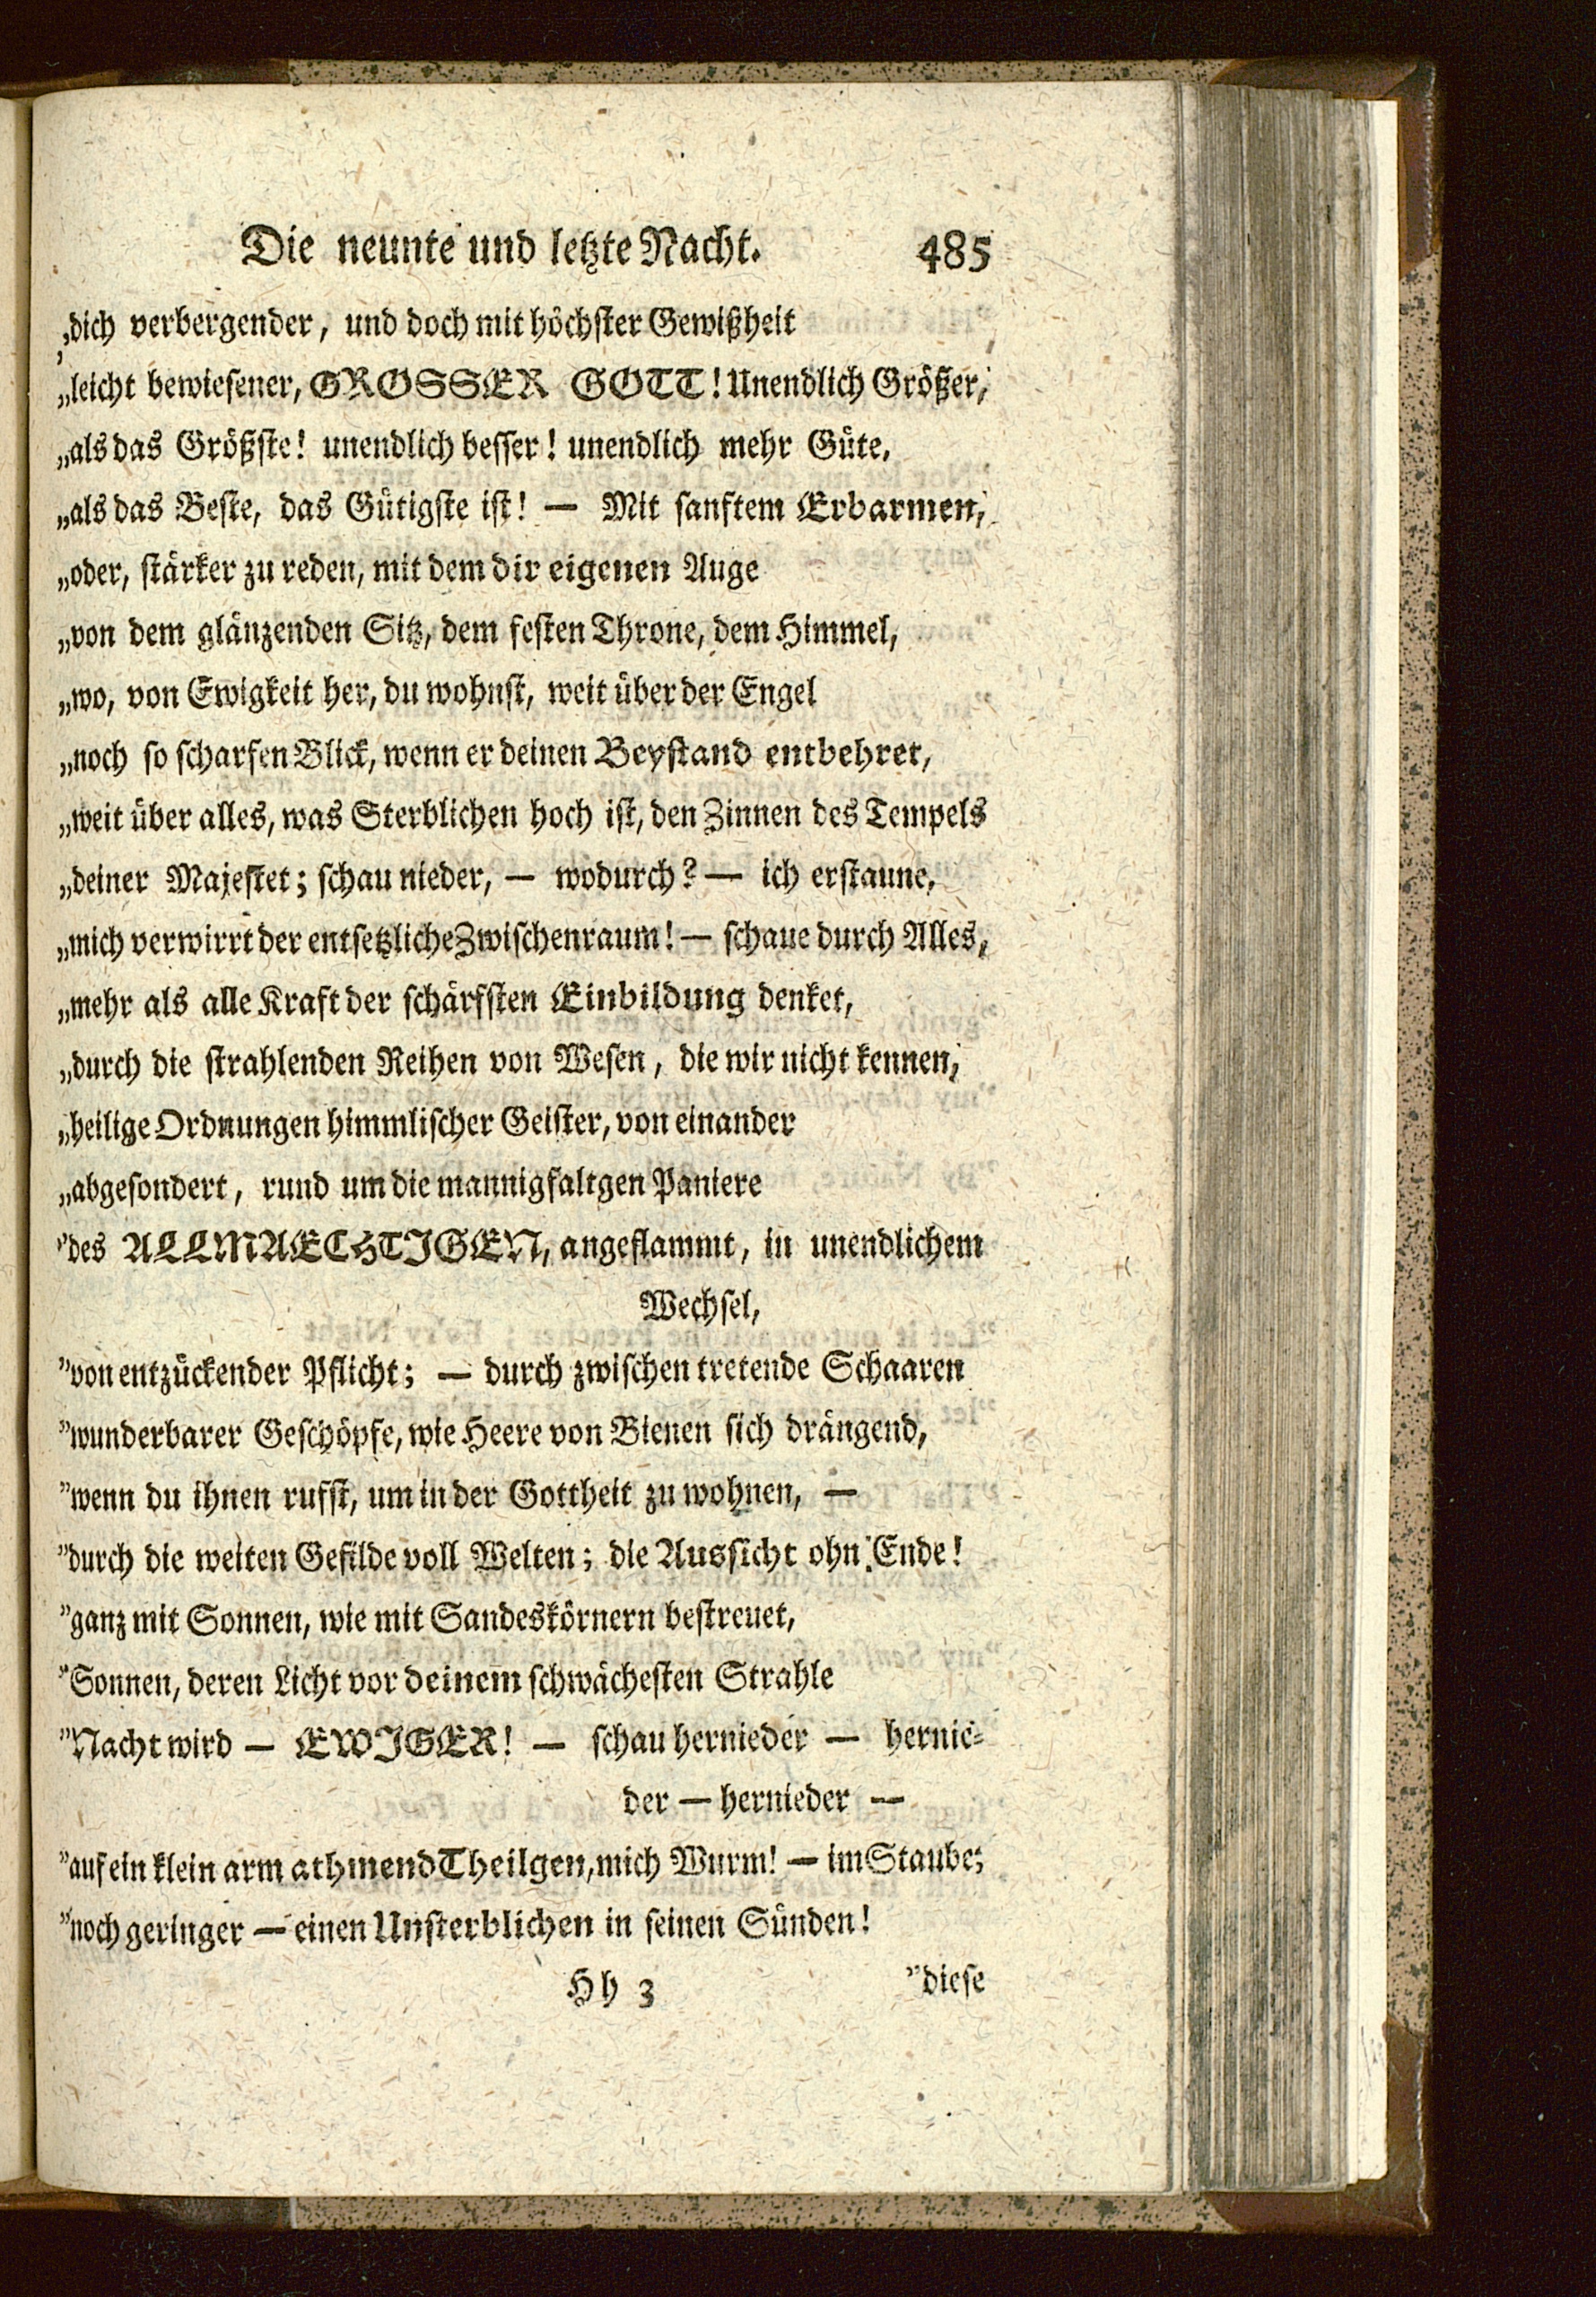 Die neunte und letzte Nacht. 485
„dich verbergender, und doch mit höchster Gewißheit
„leicht bewiesener, GROSSER GOTT! Unendlich Größer,
„als das Größste! unendlich besser! unendlich mehr Güte,
„als das Beste, das Gütigste ist! — Mit sanftem Erbarmen,
„oder, stärker zu reden, mit dem dir eigenen Auge
„von dem glänzenden Sitz, dem festen Throne, dem Himmel,
„wo, von Ewigkeit her, du wohnst, weit über der Engel
„noch so scharfen Blick, wenn er deinen Beystand entbehret,
„weit über alles, was Sterblichen hoch ist, den Zinnen des Tempels
„deiner Majestet; schau nieder, — wodurch? — ich erstaune,
„mich verwirrt der entsetzliche Zwischenraum! — schaue durch Alles,
„mehr als alle Kraft der schärfsten Einbildung denket,
„durch die strahlenden Reihen von Wesen, die wir nicht kennen,
„heilige Ordnungen himmlischer Geister, von einander
„abgesondert, rund um die mannigfaltgen Paniere
"des ALLMAECHTIGEN, angeflammt, in unendlichem
Wechsel,
"von entzückender Pflicht; — durch zwischen tretende Schaaren
"wunderbarer Geschöpfe, wie Heere von Bienen sich drängend,
"wenn du ihnen rufst, um in der Gottheit zu wohnen, —
"durch die weiten Gefilde voll Welten; die Aussicht ohn Ende!
"ganz mit Sonnen, wie mit Sandeskörnern bestreuet,
"Sonnen, deren Licht vor deinem schwächesten Strahle
"Nacht wird — EWIGER! — schau hernieder — hernie-
der — hernieder —
"auf ein klein arm athmend Theilgen, mich Wurm! — im Staube;
"noch geringer — einen Unsterblichen in seinen Sünden!
Hh 3 "diese